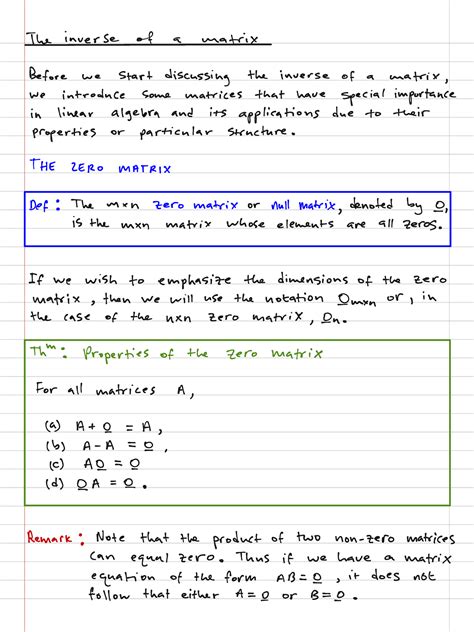 The inverse of a matrix
Before we start discussing the inverse of a matrix,
we introduce some matrices that have special importance
in linear algebra and its applications due to their
properties or particular structure.
THE ZERO MATRIX
Def: The mxn zero matrix or null matrix, denoted by 0̲,
is the mxn matrix whose elements are all zeros.
If we wish to emphasize the dimensions of the zero
matrix, then we will use the notation 0̲ₘₓₙ or, in
the case of the nxn zero matrix, 0̲ₙ.
Thᵐ: Properties of the zero matrix
For all matrices A,
(a) A + 0̲ = A,
(b) A - A = 0̲,
(c) A0̲ = 0̲
(d) 0̲A = 0̲.
Remark: Note that the product of two non-zero matrices
can equal zero. Thus if we have a matrix
equation of the form AB = 0̲, it does not
follow that either A = 0̲ or B = 0̲.